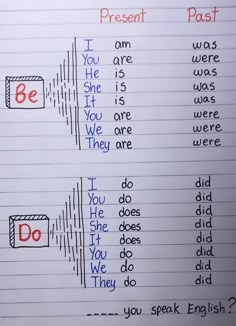 Present Past
I am was
You are were
He is was
Be She is was
It is was
You are were
We are were
They are were
I do did
You do did
He does did
Do She does did
It does did
You do did
We do did
They do did
_____ you speak English?